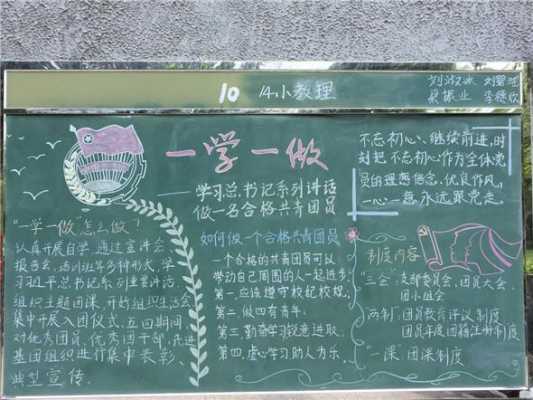 10 14小教理
一学一做
学习总书记系列讲话
做一名合格共青团员
不忘初心、继续前进,时
刻把不忘初心作为全体党
员的理想信念,优良作风,
一心一意永远跟党走。
"一学一做"怎么做?
认真开展自学,通过宣讲会
报告会、培训班等多种形式,学
习习近平总书记系列重要讲话,
组织主题团课,开好组织生活会,
集中开展入团仪式,五四期间,
对优秀团员,优秀团干部,先进
基团组织进行集中表彰、
典型宣传.
如何做一个合格共青团员
一个合格的共青团员可以
带动自己周围的人一起进步,
第一,应该遵守校纪校规,
第二,做四有青年,
第三,勤奋学习锐意进取,
第四,虚心学习助人为乐,
制度内容
"三会":支部委员会,团员大会,
团小组会
"两制":团员教育评议制度
团员年度团籍注册制度
"一课"团课制度